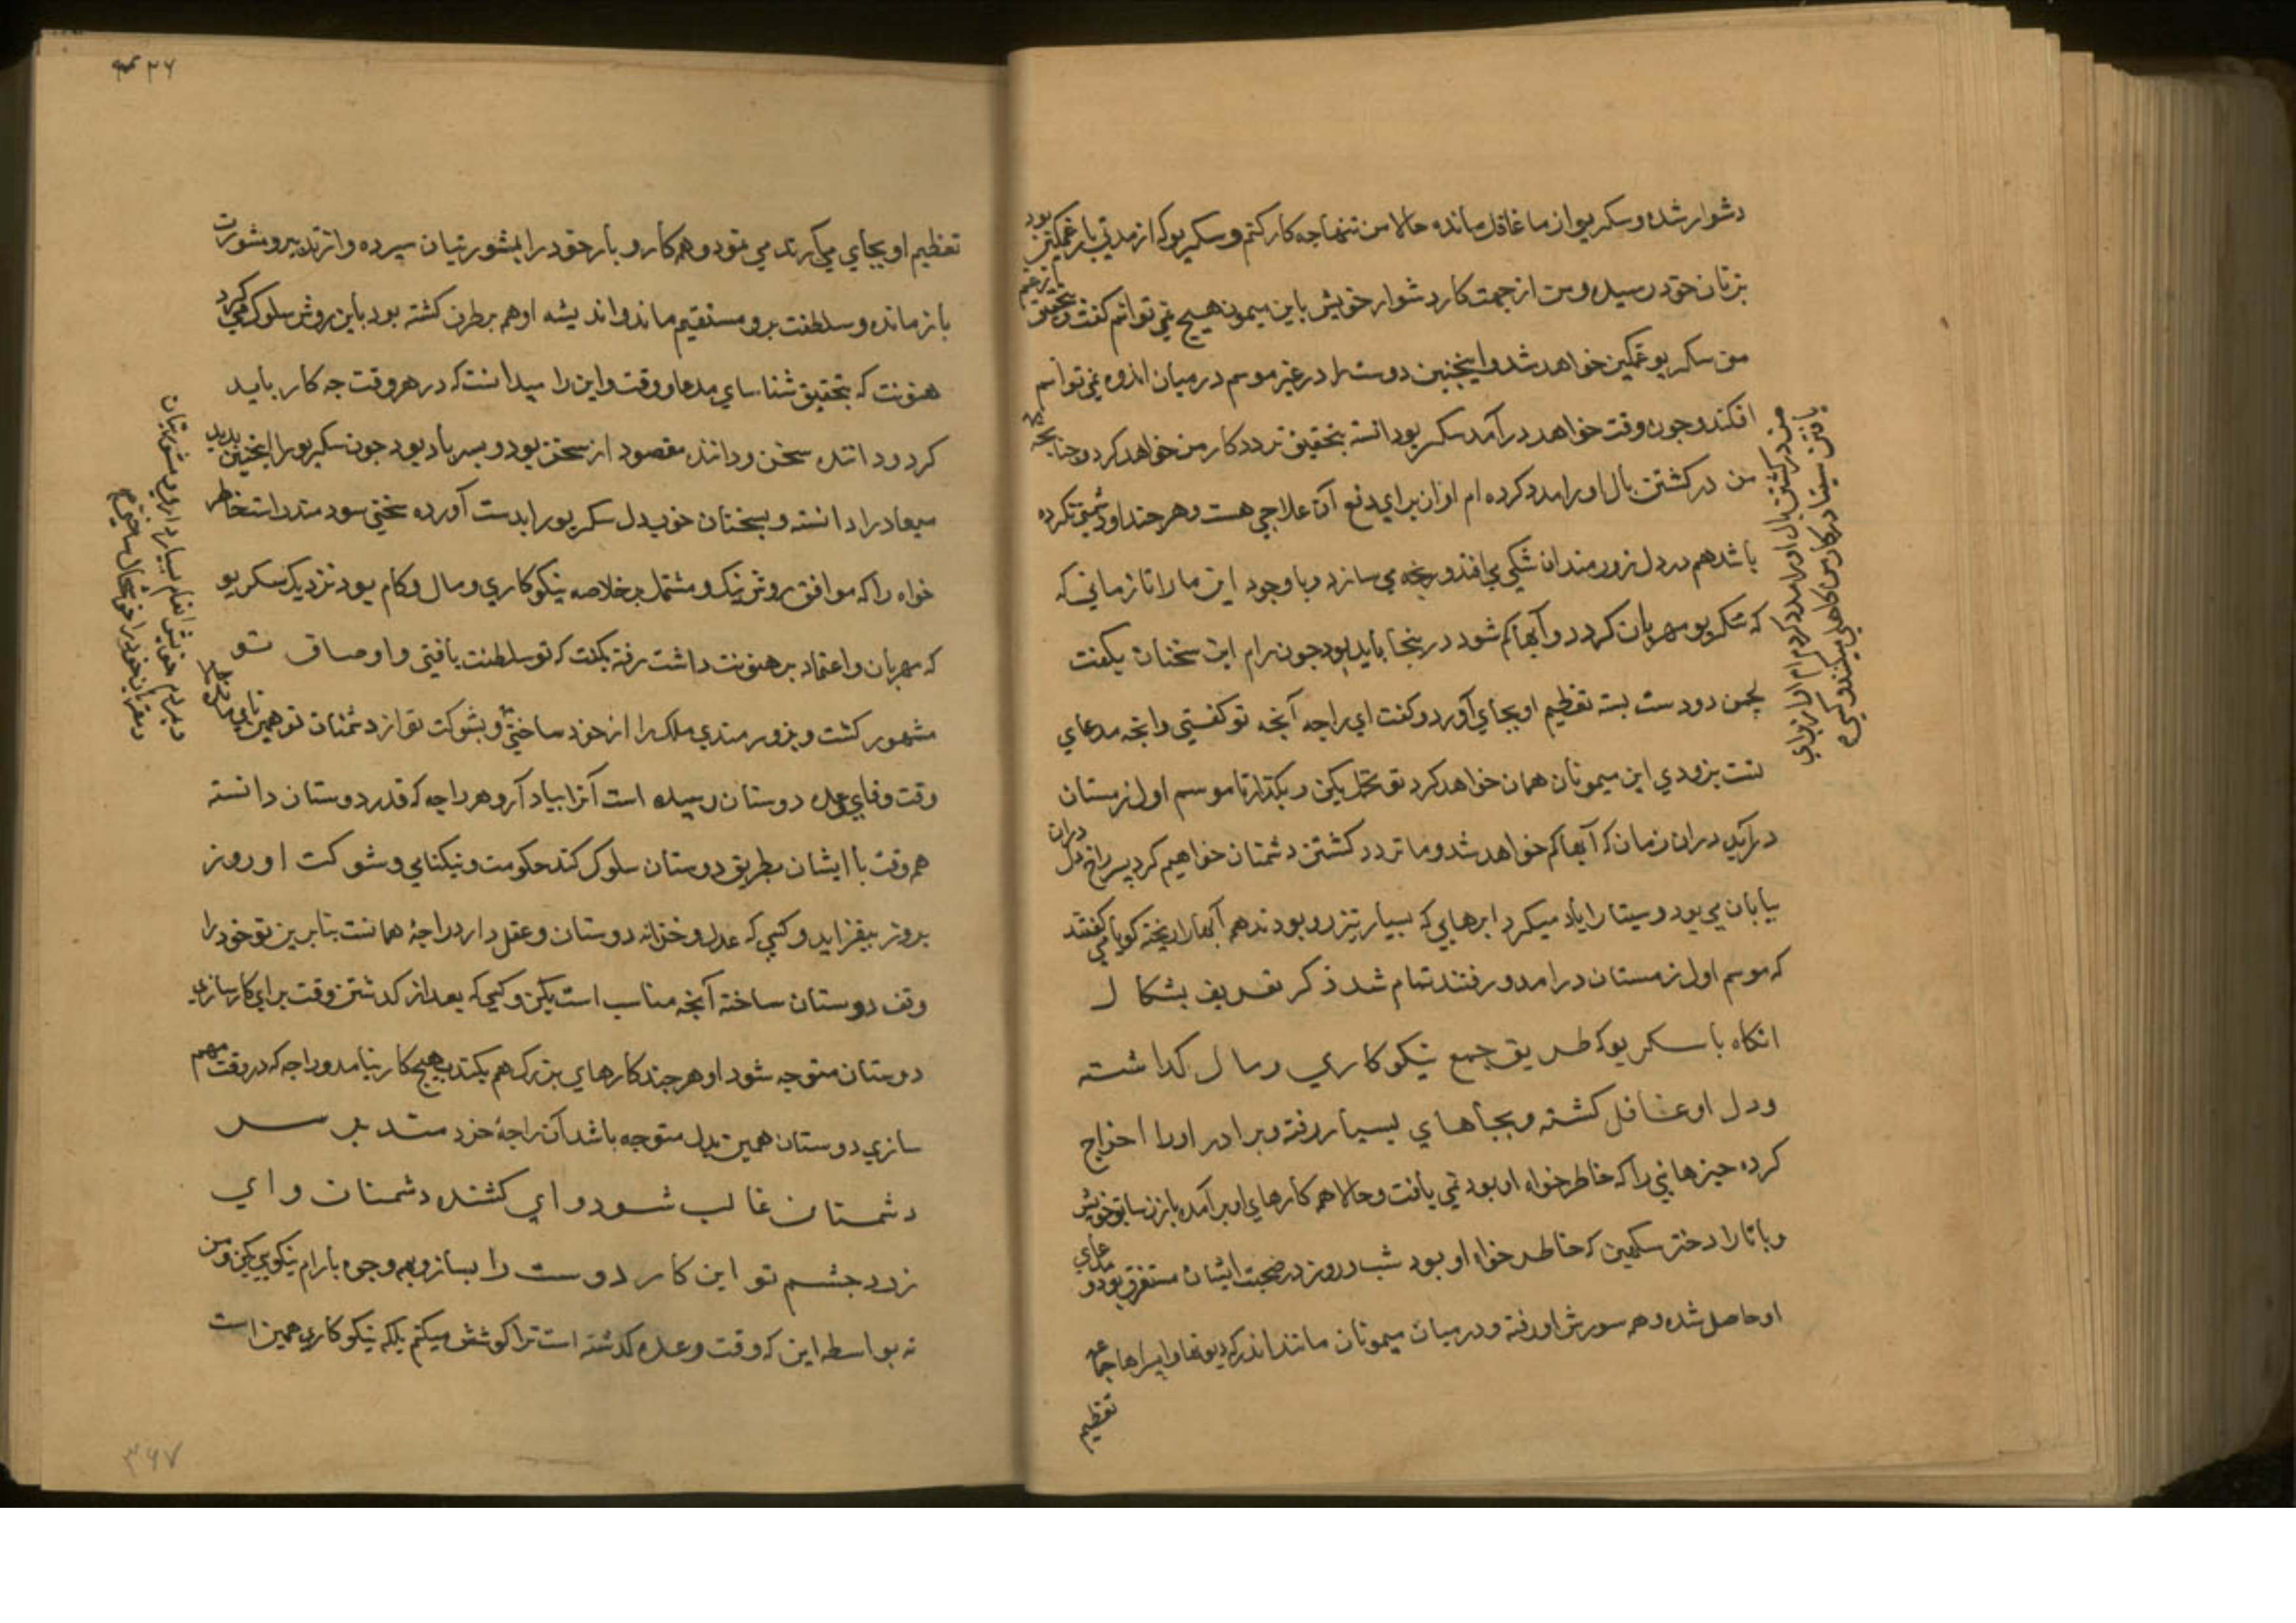 دشوار شده و سکریو از ما غافل مانده حالا من تنها چه کار کنم و سکریو که از مدتی باز غمکین بود
بزنان خود رسیده و من از جهت کار دشوار خویش باین میمون هیچ نمی توانم کفت و بتحقیق
سکریو غمکین خواهد شد و اینچنین دوست را در غیر موسم در میان اندوه نمی توانم
افکند و چون وقت خواهد درآمد سکریو دانسته بتحقیق تردد کار من خواهد کرد و چنانچه
من در کشتن بال او را مدد کرده ام او از برای دفع آن علاجی هست و هر چند او دشمنی نکرده
باشد هم در دل زورمندان شکی می افتد و رنجه می سازد و با وجود این ما را تا زمانی که
که سکریو مهربان کردد و آبها کم شود در ینجا باید بود چون رام این سخنان بکفت
لچمن دو دست بسته تعظیم او بجای آورد و کفت ای راجه آنچه تو کفتی و آنچه مدعای
تست بزودی این میمونان همان خواهد کرد تو تحمل بکن و بکذار تا موسم اول زمستان
درآید دران زمان که آبها کم خواهد شد و ما تردد کشتن دشمنان خواهیم کرد پس راجه دران
بیابان می بود و سیتا را یاد میکرد ابرهایی که بسیار تیز رو بودند هم آبها را ریخته کویا می کفتند
که موسم اول زمستان درآمد و رفتند تمام شد ذکر تعریف بشکال
انکاه با سکریو که طریق جمع نیکوکاری و مال کذاشته
و دل او غافل کشته و بجاهای بسیار رفته و برادر او را اخراج
کرده چیزهائی را که خاطر خواه او بود نمی یافت و حالا همه کارهای او برآمده با زن سابق خویش
و با تارا دختر سکهین که خاطر خواه او بود شب و روز در صحبت ایشان مستغرق بود و مدعای
او حاصل شده و همه سوزش او رفته و در میان میمونان مانند اندر که دیوتها و اپسراها جمله
تعظیم
من در کشتن بال او را مدد کرده ام او از برای
یافتن سیتا در کار من کاهلی میکند و کسی که
تعظیم او بجای می آرند می بود و همه کار و بار خود را بمشورتیان سپرده و از تدبیر و مشورت
باز مانده و سلطنت برو مستقیم ماند و اندیشه او هم برطرف کشته بود باین روش سلوک می کرد
هنونت که بتحقیق شناسای مدعا و وقت و این را میدانست که در هر وقت چه کار باید
کرد و داننده سخن و دانند مقصود از سخن بود و پسر باد بود چون سکریو را اینچنین بدید
میعاد را دانسته و بسخنان خوب دل سکریو را بدست آورده سخنی سودمند راست خاطر
خواه را که موافق روش نیک و مشتمل بر خلاصه نیکوکاری و مال و کام بود نزدیک سکریو
که مهربان و اعتماد بر هنونت داشت رفته بکفت که تو سلطنت یافتی و اوصاف تو
مشهور کشت و بزورمندی ملک را از خود ساختی و بشوکت تو از دشمنان تو همین نامی مانده
وقت وفای وعده دوستان رسیده است آنرا بیاد آر و هر راجه که قدر دوستان دانسته
همه وقت با ایشان بطریق دوستان سلوک کند حکومت و نیکنامی و شوکت او روز
بروز بیفزاید و کسی که عدل و خزانه دوستان و عقل دارد راجه همانست بنابرین تو خود را
وقف دوستان ساخته آنچه مناسب است بکن و کسی که بعد از کذشتن وقت برای کارسازی
دوستان متوجه شود او هر چند کارهای بزرک هم بکند بهیچ کار نیامد و راجه که در وقت مهم
سازی دوستان همین بدل متوجه باشد آن راجه خردمند بر سر
دشمنان غالب شود و ای کشنده دشمنان و ای
زرد چشم تو این کار دوست را بساز و بهمه وجوه با رام نیکویی بکن و من
نه بواسطه این که وقت وعده کذشته است ترا کوشش میکنم بلکه نیکوکاری همین است
و بمردم خویش انعام بسیار دادی و مشورتیان
و مقربان خود را خوشحال ساختی
۳۶۷